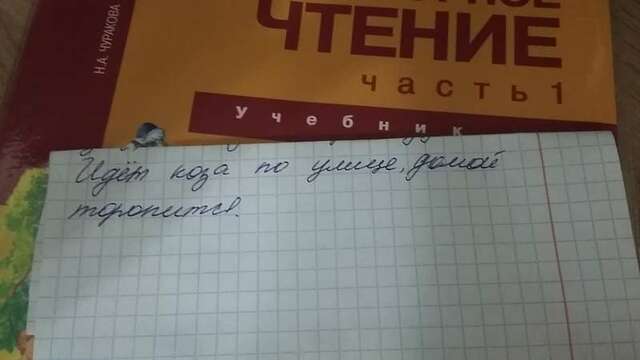 Идёт коза по улице, домой
торопится.
Н.А. ЧУРАКОВА
ЧТЕНИЕ
часть 1
учебник